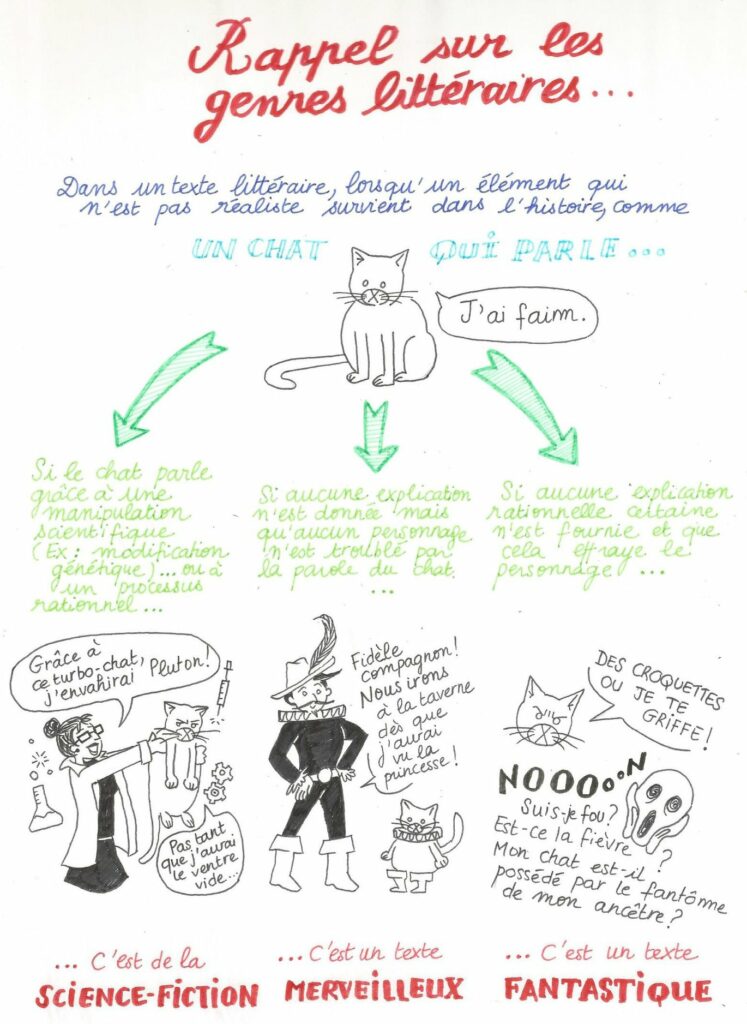 Rappel sur les
genres littéraires...
Dans un texte littéraire, lorsqu'un élément qui
n'est pas réaliste survient dans l'histoire, comme
UN CHAT QUI PARLE...
J'ai faim.
Si le chat parle
grâce à une
manipulation
scientifique
(Ex : modification
génétique)... ou à
un processus
rationnel...
Si aucune explication
n'est donnée mais
qu'aucun personnage
n'est troublé par
la parole du chat.
...
Si aucune explication
rationnelle certaine
n'est fournie et que
cela effraye le
personnage ...
Grâce à
ce turbo-chat,
j'envahirai Pluton!
Pas tant
que j'aurai
le ventre
vide...
Fidèle
compagnon!
Nous irons
à la taverne
dès que
j'aurai
vu la
princesse!
DES CROQUETTES
OU JE TE
GRIFFE!
NOOOooN
Suis-je fou?
Est-ce la fièvre ?
Mon chat est-il
possédé par le fantôme
de mon ancêtre?
... C'est de la
SCIENCE-FICTION
... C'est un texte
MERVEILLEUX
... C'est un texte
FANTASTIQUE